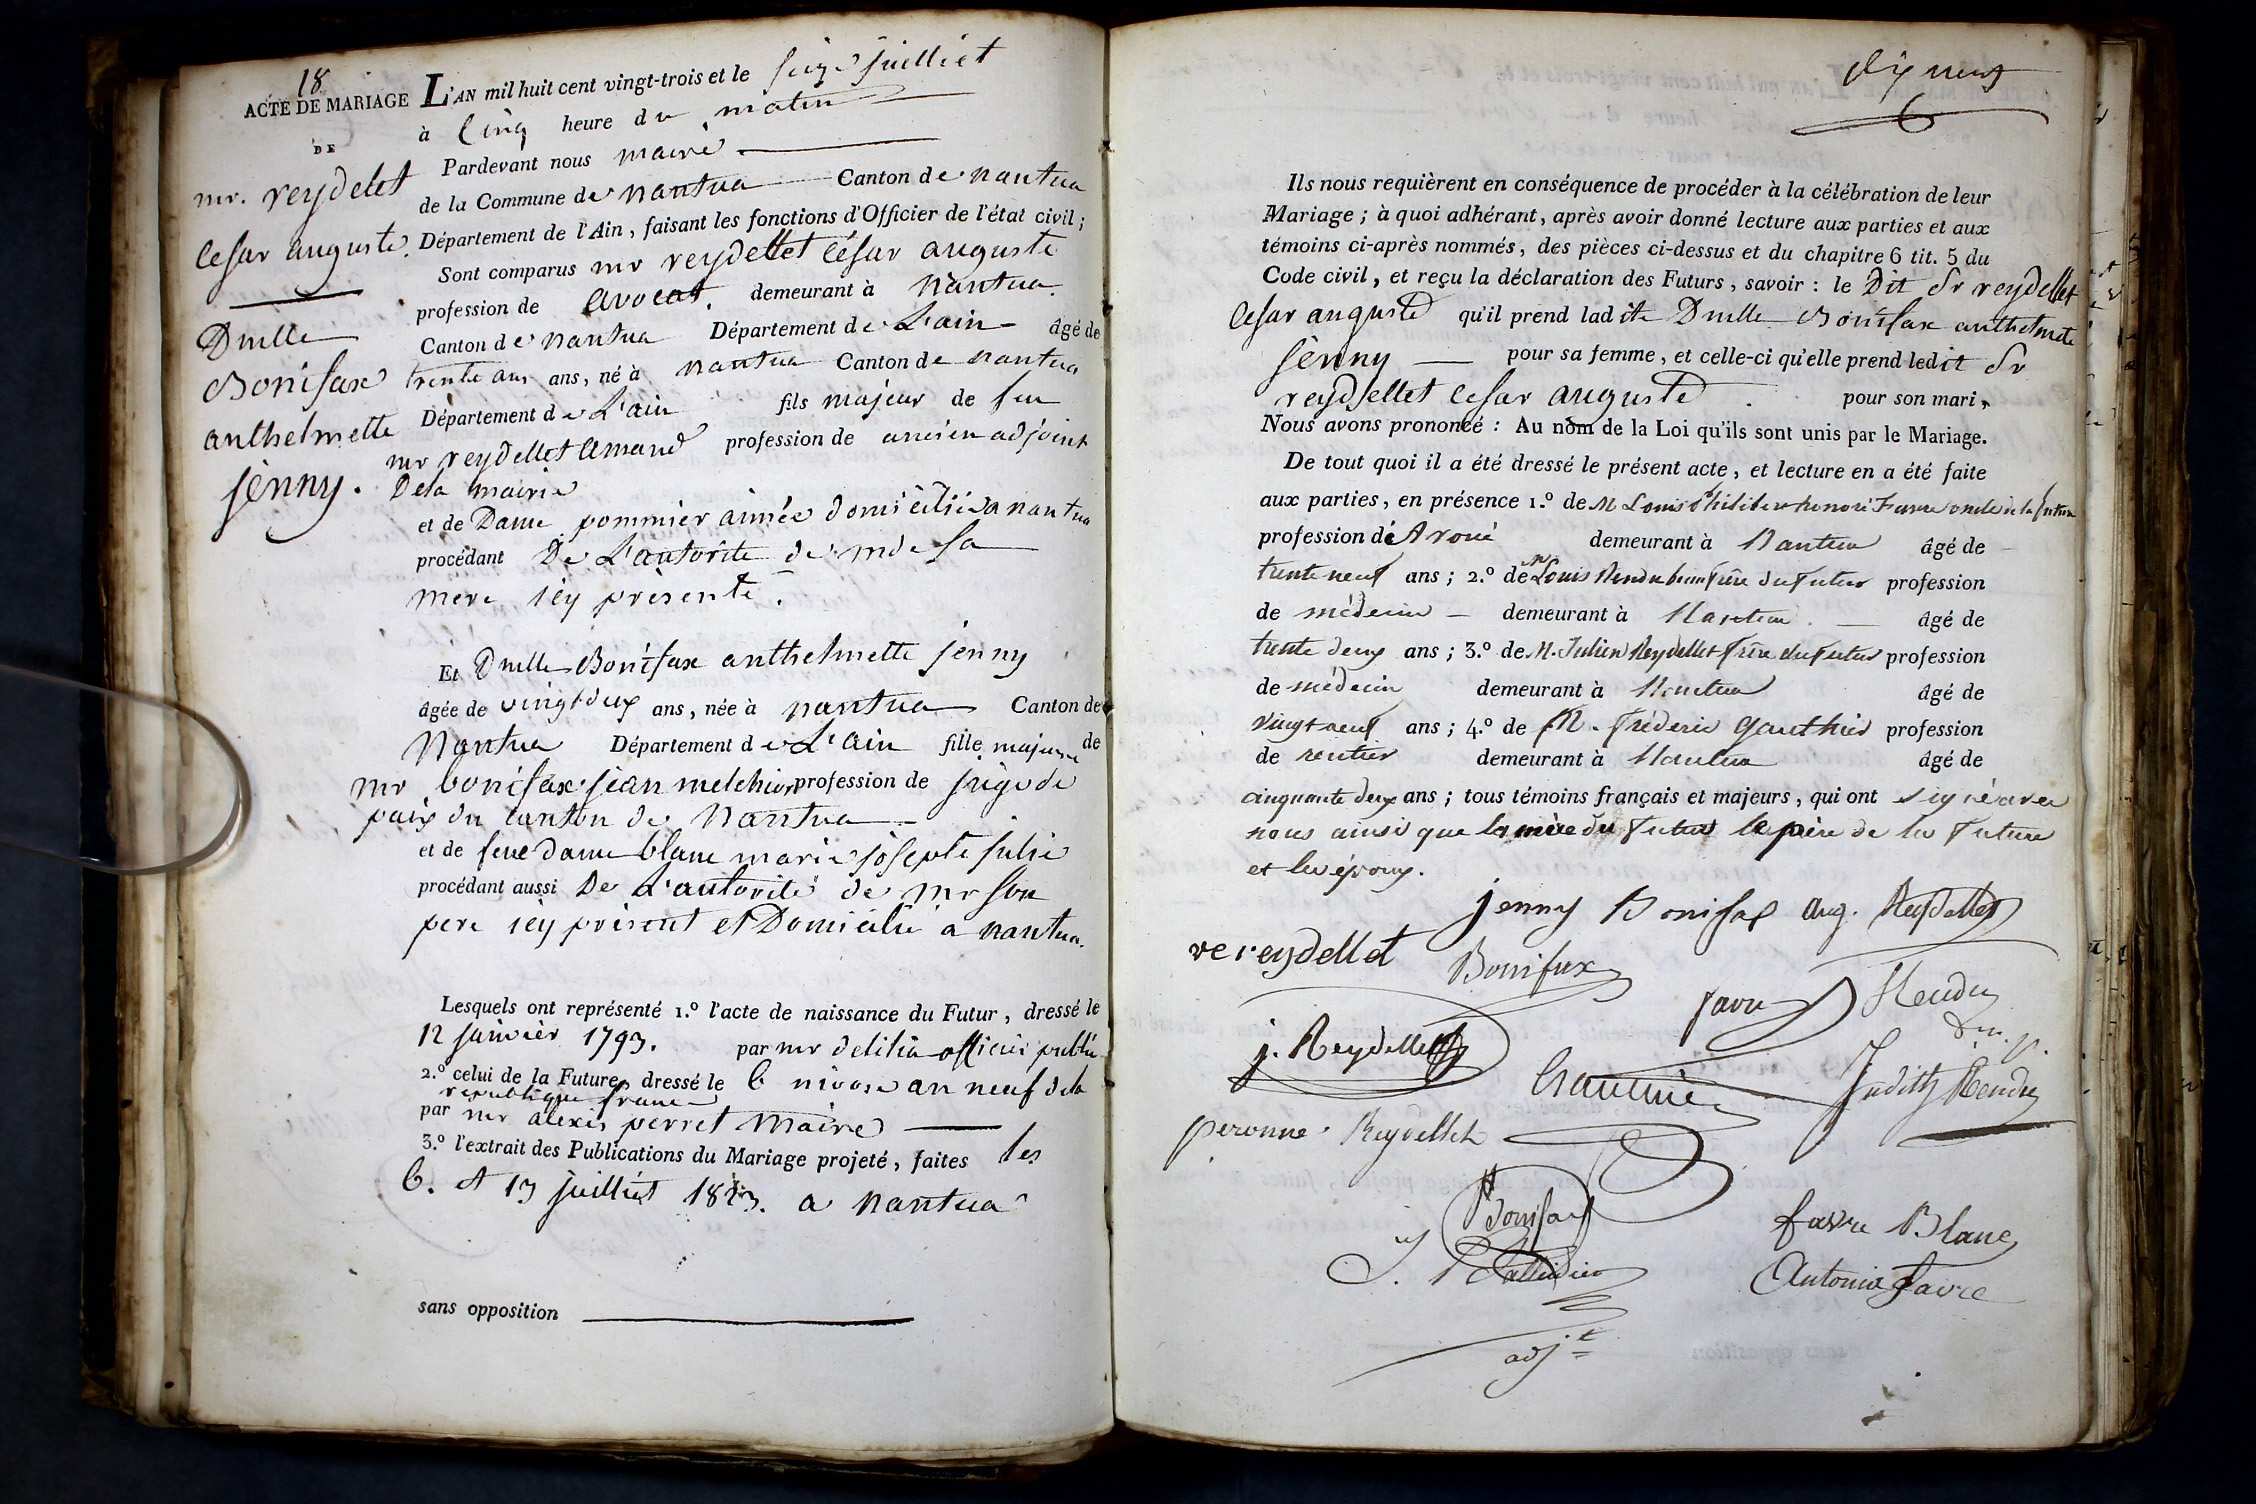 18
ACTE DE MARIAGE
DE
mr. reydelet
Cesar auguste.
Dmelle
Bonifax
anthelmette
jenny.
L'AN mil huit cent vingt-trois et le seize juilliet
à Cinq heure du matin
Pardevant nous maire
de la Commune de nantua Canton de nantua
Département de l'Ain, faisant les fonctions d'Officier de l'état civil;
Sont comparus mr reydellet César auguste
profession de avocat. demeurant à Nantua.
Canton de nantua Département de L'ain âgé de
trente ans ans, né à nantua Canton de nantua
Département de L'ain fils majeur de feu
mr reydellet Amand profession de ancien adjoint
De la mairie
et de Dame pommier aimée domiciliée a nantua
procédant De L'autorité de mde sa
mere icy présente.
Et Dmelle Bonifax anthelmette jenny
âgée de vingt deux ans, née à nantua Canton de
Nantua Département de L'ain fille majeure de
mr bonifax jean melchior profession de juge de
paix du canton de Nantua
et de feue dame blanc marie josepte julie
procédant aussi De L'autorité de mr son
pere icy présent et Domicilié a nantua.
Lesquels ont représenté 1.º l'acte de naissance du Futur, dressé le
12 janvier 1793. par mr delilia officier public
2.º celui de la Future, dressé le 6 nivose an neuf de la
republique franc
par mr alexis perret Maire
3.º l'extrait des Publications du Mariage projeté, faites les
6. et 13 juilliet 1823. a nantua
sans opposition
dix neuf
Ils nous requièrent en conséquence de procéder à la célébration de leur
Mariage; à quoi adhérant, après avoir donné lecture aux parties et aux
témoins ci-après nommés, des pièces ci-dessus et du chapitre 6 tit. 5 du
Code civil, et reçu la déclaration des Futurs, savoir: le Dit Sr reydellet
Cesar auguste qu'il prend ladite Dmelle Bonifax anthelmete
jenny pour sa femme, et celle-ci qu'elle prend ledit Sr
reydellet Cesar auguste. pour son mari,
Nous avons prononcé: Au nom de la Loi qu'ils sont unis par le Mariage.
De tout quoi il a été dressé le présent acte, et lecture en a été faite
aux parties, en présence 1.º de M Louis Philibert honoré Favre oncle de la future
profession de Avoué demeurant à Nantua âgé de
trente neuf ans; 2.º de Mr Louis Rendu beau frère du Futur profession
de médecin demeurant à Nantua. âgé de
trente deux ans; 3.º de M. Julien Reydellet frère du futur profession
de médecin demeurant à Nantua âgé de
vingt neuf ans; 4.º de M. Fréderic Gauthier profession
de rentier demeurant à Nantua âgé de
cinquante deux ans; tous témoins français et majeurs, qui ont signé avec
nous ainsi que la mère du Futur le père de la Future
et les époux.
jenny Bonifax aug. Reydellet
ve reydellet Bonifax
favre Rendu
j. Reydellet
Gauthier Judith Rendu
peronne Reydellet
Bonifax
favre Blanc
Antonia favre
adjt